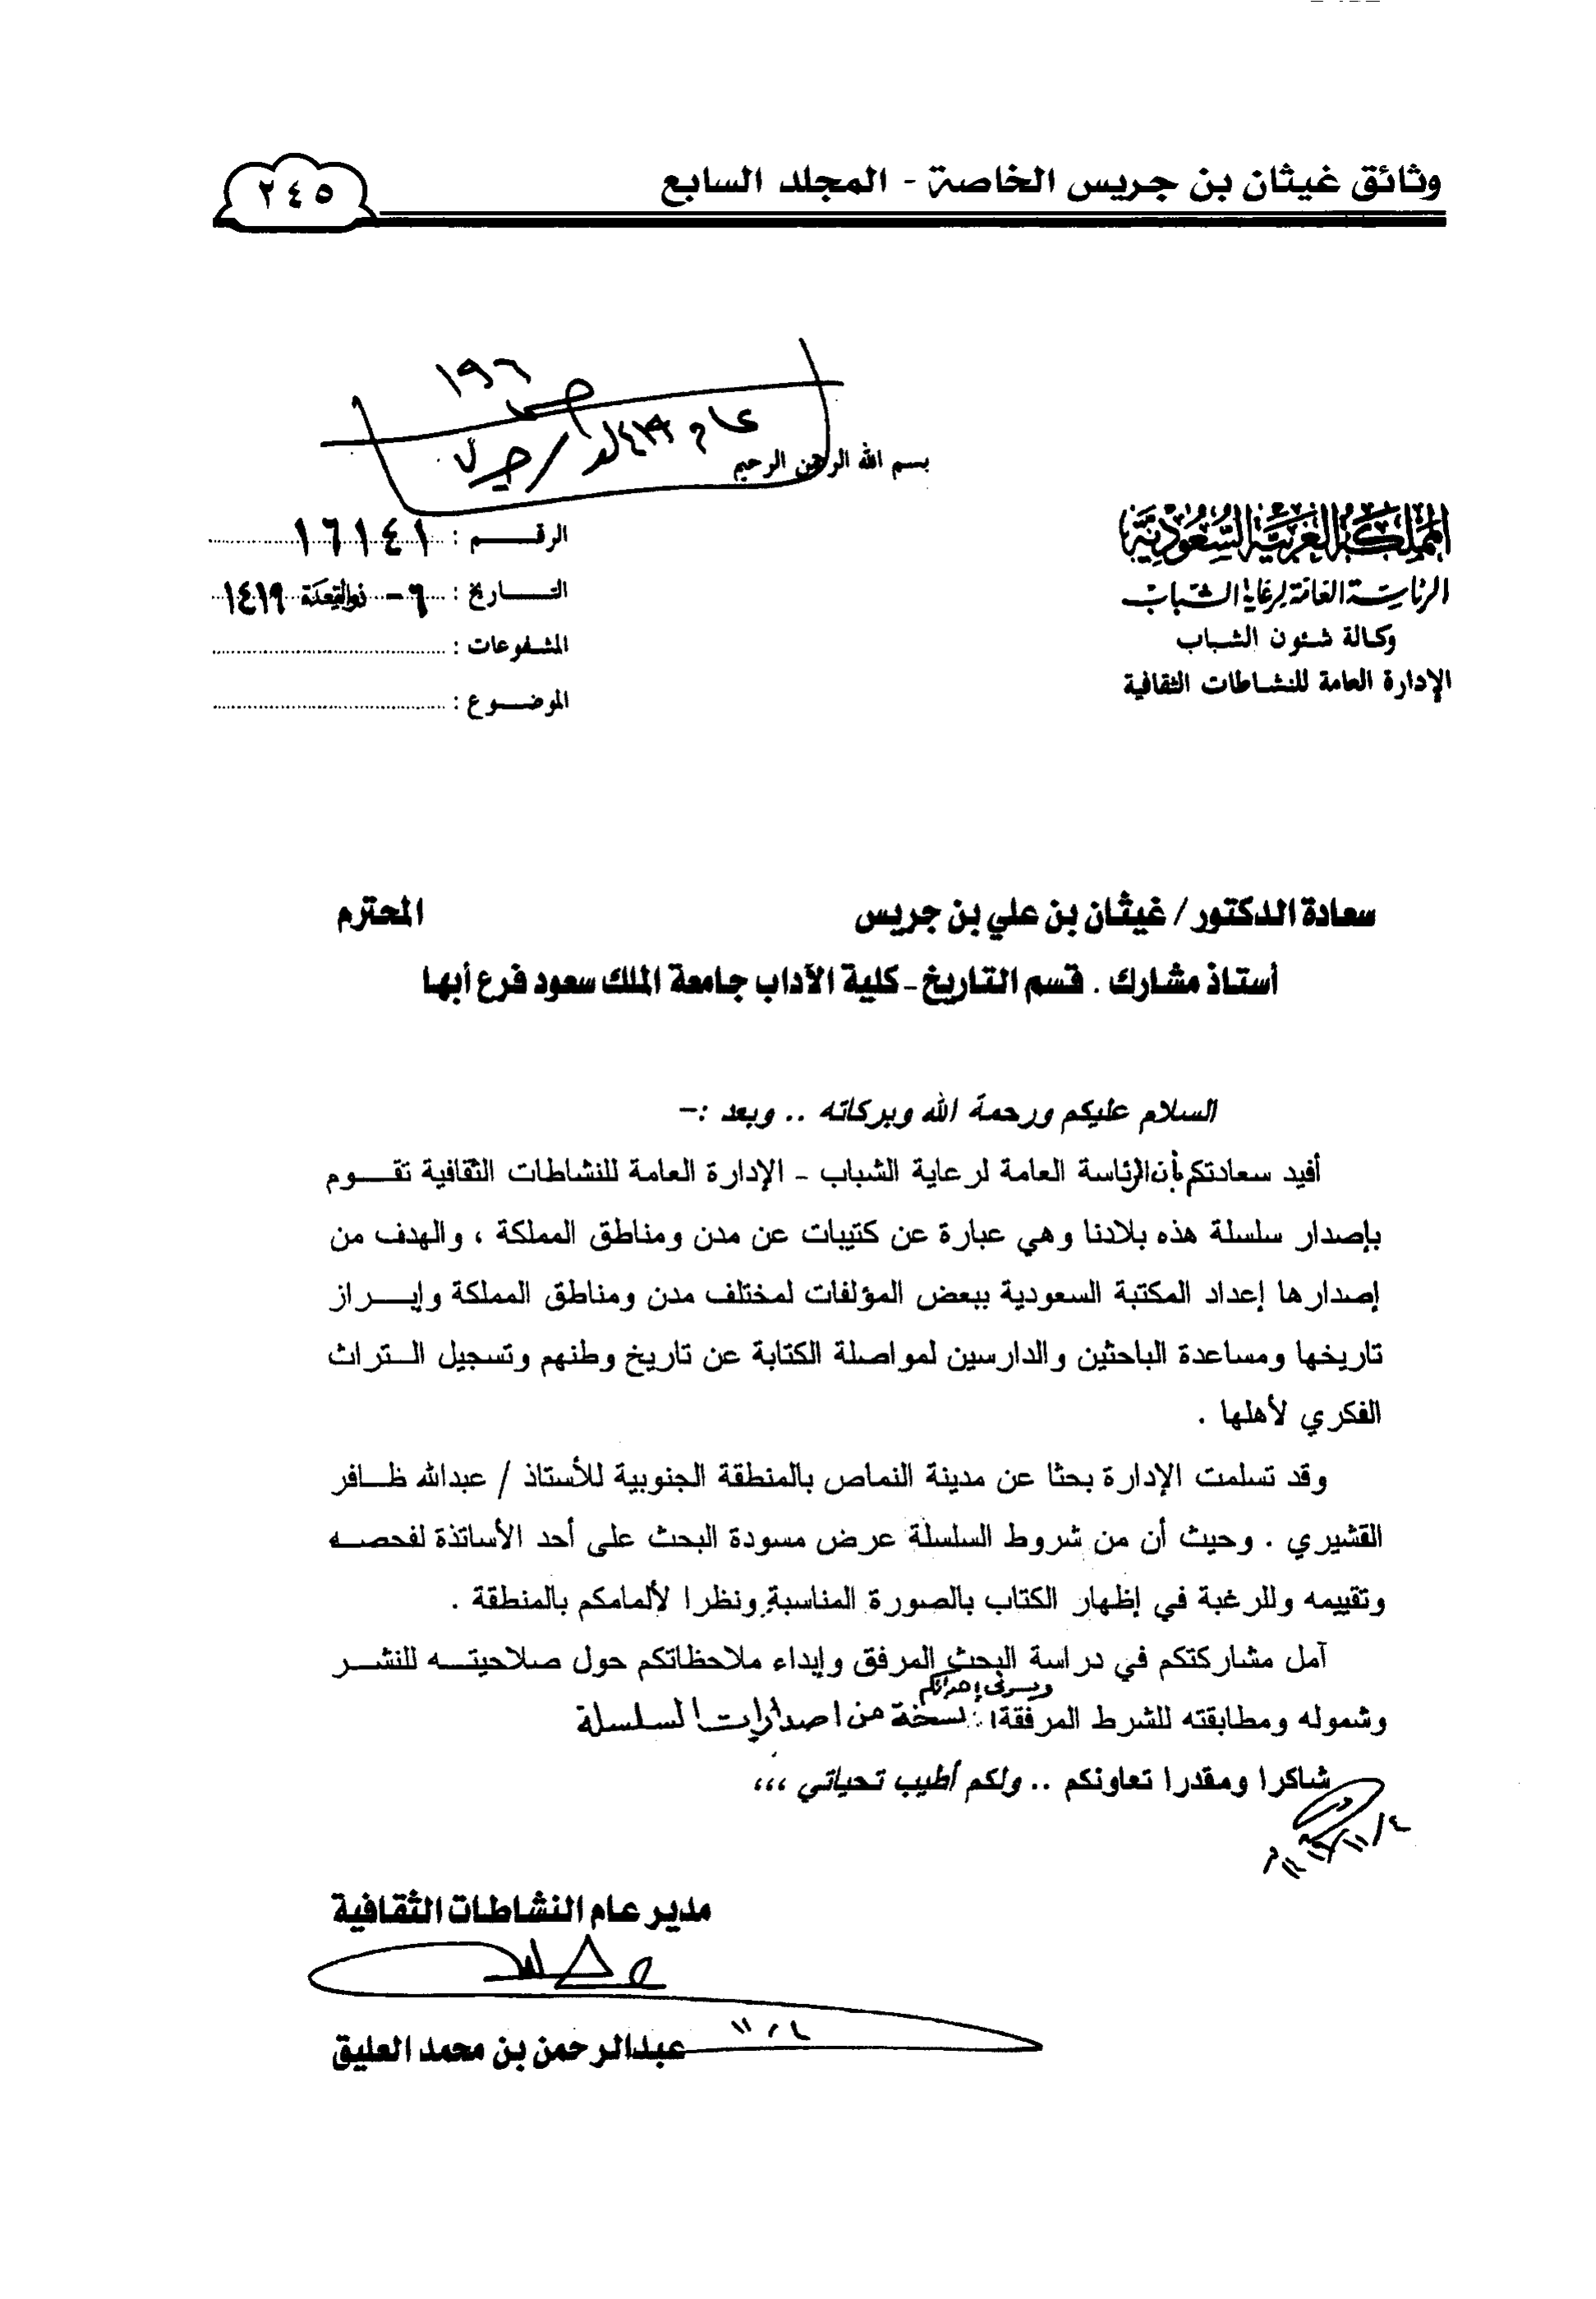 وثائق غيثان بن جريس الخاصة - المجلد السابع
٢٤٥
١٩٦
بسم الله الرحمن الرحيم
المملكة العربية السعودية
الرئاسة العامة لرعاية الشباب
وكالة شئون الشباب
الإدارة العامة للنشاطات الثقافية
الرقـــــم : ١٦١٤١
التـــاريخ : ٦ - ذو القعدة ١٤١٩
المشفوعات :
الموضـــوع :
سعادة الدكتور / غيثان بن علي بن جريس المحترم
أستاذ مشارك . قسم التاريخ - كلية الآداب جامعة الملك سعود فرع أبها
السلام عليكم ورحمة الله وبركاته .. وبعد :-
أفيد سعادتكم بأن الرئاسة العامة لرعاية الشباب - الإدارة العامة للنشاطات الثقافية تقـــوم
بإصدار سلسلة هذه بلادنا وهي عبارة عن كتيبات عن مدن ومناطق المملكة ، والهدف من
إصدارها إعداد المكتبة السعودية ببعض المؤلفات لمختلف مدن ومناطق المملكة وإبـــراز
تاريخها ومساعدة الباحثين والدارسين لمواصلة الكتابة عن تاريخ وطنهم وتسجيل الــتراث
الفكري لأهلها .
وقد تسلمت الإدارة بحثا عن مدينة النماص بالمنطقة الجنوبية للأستاذ / عبدالله ظــافر
القشيري . وحيث أن من شروط السلسلة عرض مسودة البحث على أحد الأساتذة لفحصــه
وتقييمه وللرغبة في إظهار الكتاب بالصورة المناسبة ونظرا لألمامكم بالمنطقة .
آمل مشاركتكم في دراسة البحث المرفق وإبداء ملاحظاتكم حول صلاحيتــه للنشــر
ويسرني إهدائكم
وشموله ومطابقته للشرط المرفقة نسخة من اصدارات السلسلة
شاكرا ومقدرا تعاونكم .. ولكم أطيب تحياتي ،،،
مدير عام النشاطات الثقافية
عبدالرحمن بن محمد العليق